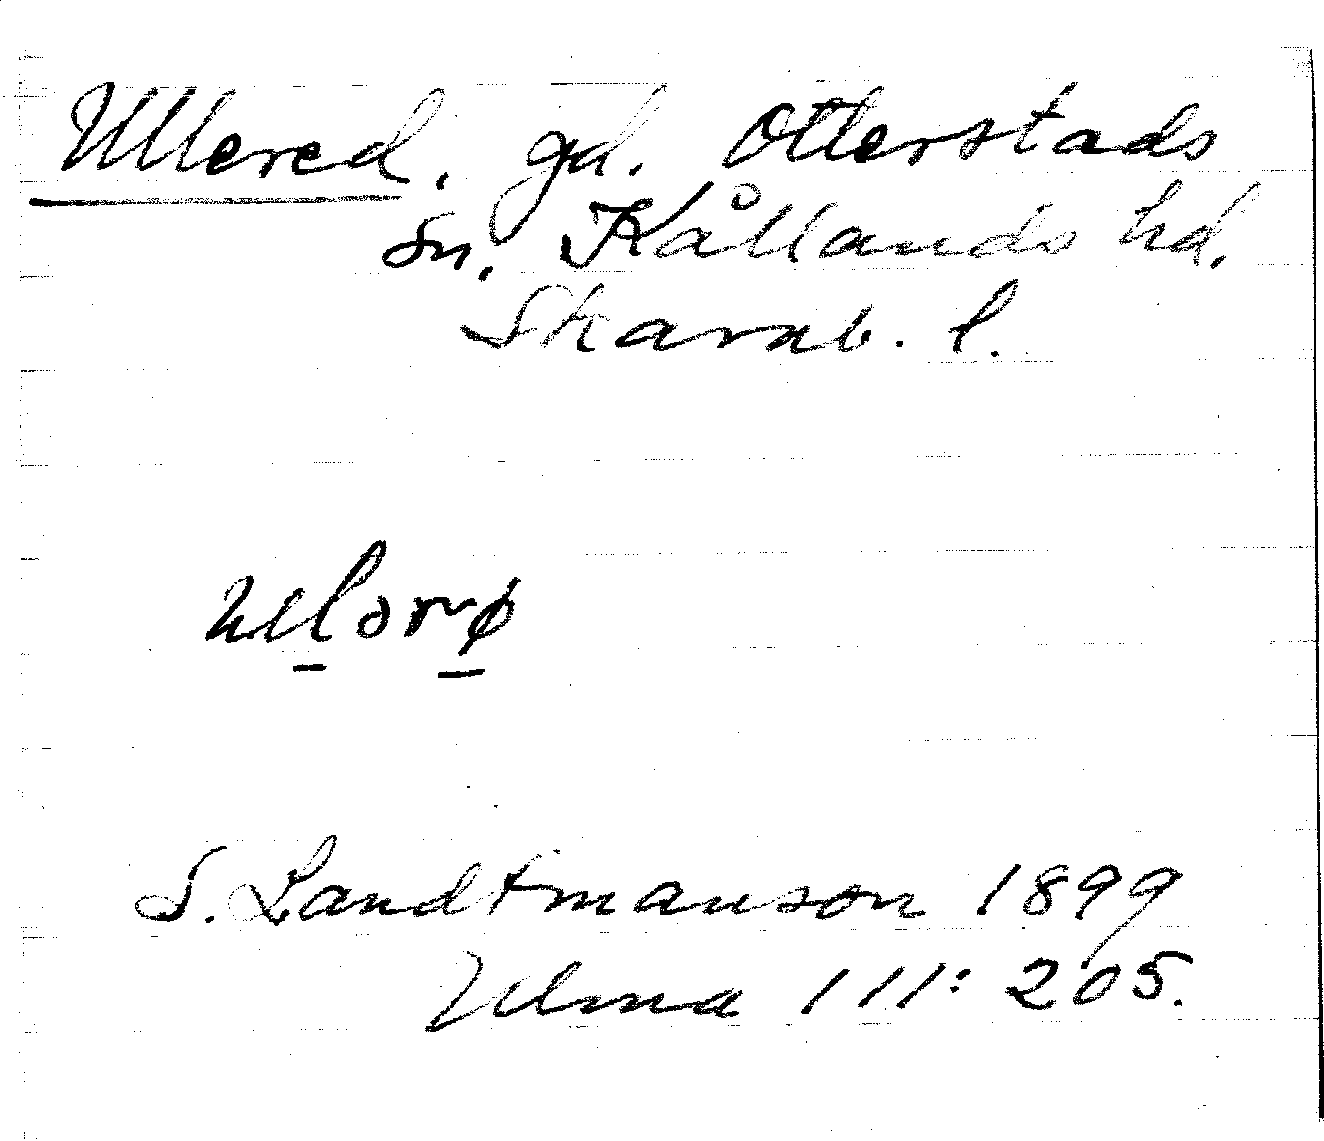 Ullered, gd. Otterstads
sn, Kållands hd,
Skarab. l.
S. Landtmanson 1899
Ulma 111: 205.